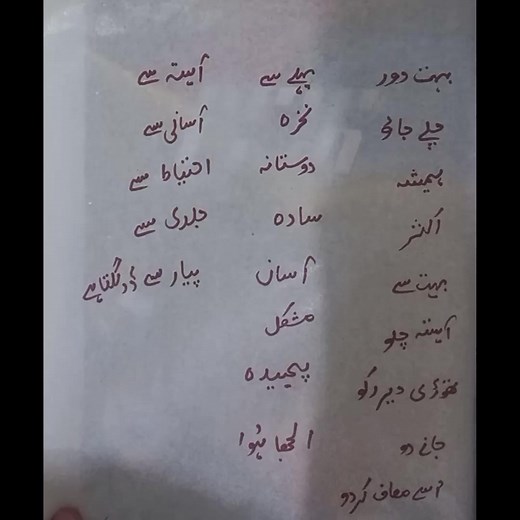 بہت دور پہلے سے آہستہ سے
چلے جاؤ نخرہ آسانی سے
ہمیشہ دوستانہ احتیاط سے
اکثر سادہ جلدی سے
بہت سے آسان پیار سے ڈر لگتا ہے
آہستہ چلو مشکل
تھوڑی دیر رکو پیچیدہ
جانے دو الجھا ہوا
اسے معاف کردو